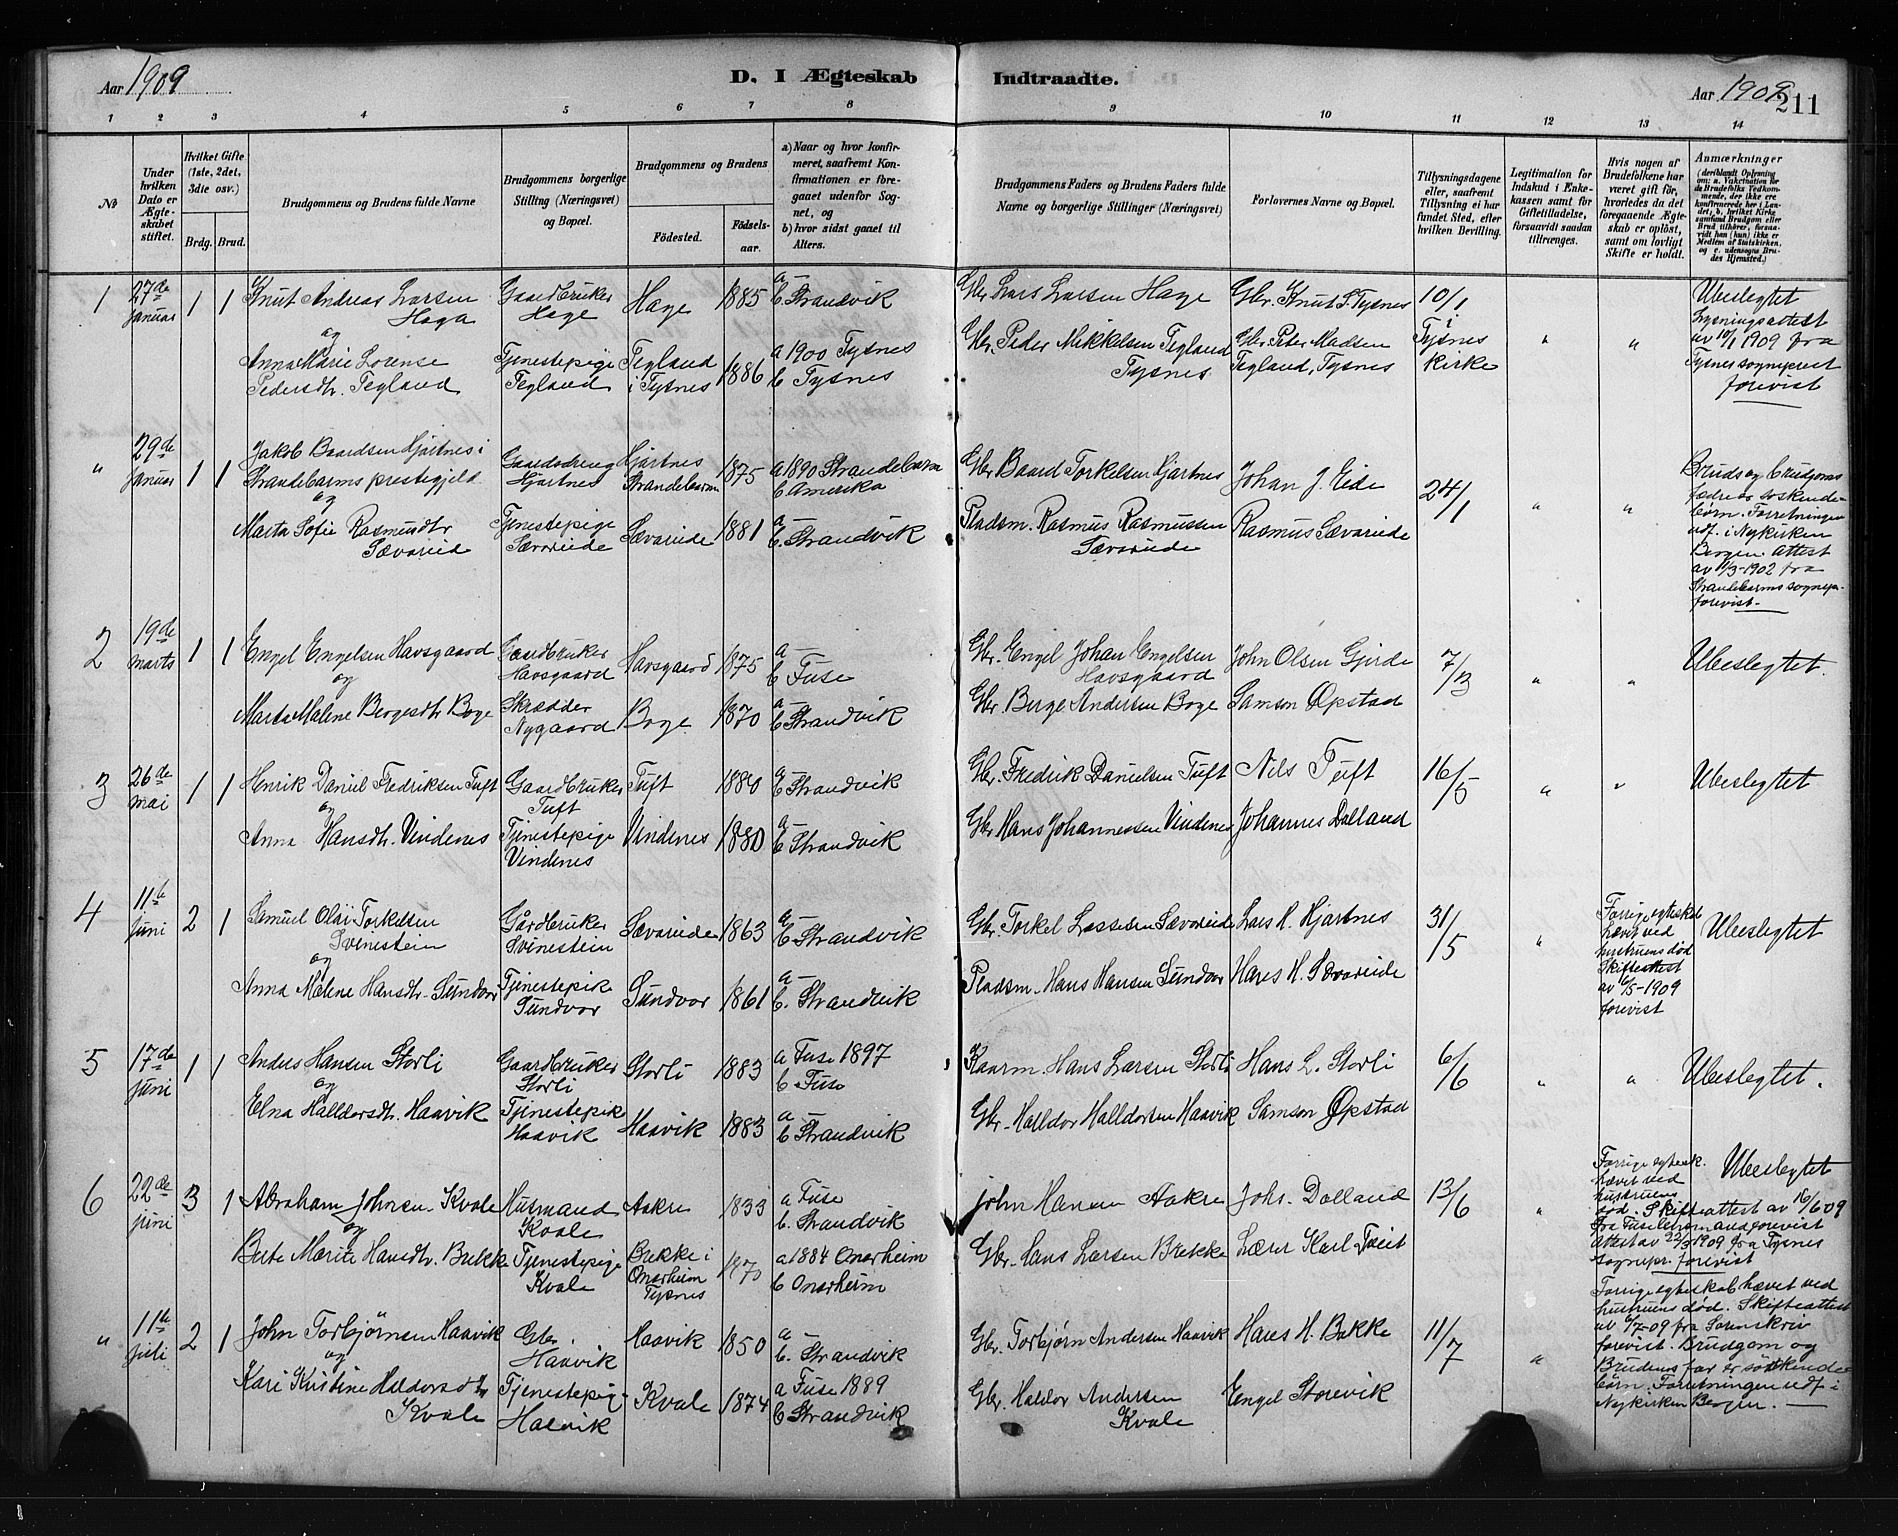 Aar 1909
D. I Ægteskab Indtraadte.
Aar 1909
211
1 2 3 4 5 6 7 8 9 10 11 12 13 14
№
Under hvilken Dato er Ægteskabet stiftet.
Hvilket Gifte (1ste, 2det, 3die osv.)
Brdg. Brud.
Brudgommens og Brudens fulde Navne
Brudgommens borgerlige Stilling (Næringsvei) og Bopæl.
Brudgommens og Brudens
Fødested.
Fødselsaar.
a) Naar og hvor konfirmeret, saafremt Konfirmationen er foregaaet udenfor Sognet, og
b) hvor sidst gaaet til Alters.
Brudgommens Faders og Brudens Faders fulde Navne og borgerlige Stillinger (Næringsvei)
Forlovernes Navne og Bopæl.
Tillysningsdagene eller, saafremt Tillysning ei har fundet Sted, efter hvilken Bevilling.
Legitimation for Indskud i Enkekassen samt for Giftetilladelse, forsaavidt saadan tiltrænges.
Hvis nogen af Brudefolkene har været gift før, hvorledes da det foregaaende Ægteskab er opløst, samt om lovligt Skifte er holdt.
Anmærkninger
1 27de januar 1 1 Knut Andreas Larsen Haga Gaardbruker Hage Hage 1885 a — b Strandvik
og
Anna Marie Lorense Pedersdtr. Tegland Tjenestepige Tegland Tegland i Tysnes 1886 a 1900 Tysnes b Tysnes
Gbr Lars Larsen Hage Gbr. Knut S. Tysnes 10/1 i Tysnes kirke " "
Gbr. Peder Mikkelsen Tegland Tysnes Gbr. Peter Madsen Tegland, Tysnes
Ubeslegtet
Lysningsattest
av 10/1 1909 fra
Tysnes sogneprest
forevist
" 29de januar 1 1 Jakob Baardsen Hjartnes i Strandebarms prestegjeld Gaardsdreng Hjartnes Hjartnes Strandebarm 1875 a 1890 Strandebarm b Amerika
og
Marta Sofie Rasmusdtr Sævareide Tjenestepige Sævareide Sævareide 1881 a — b. Strandvik
Gbr Baard Torkelsen Hjartnes Johan J. Eide 24/1 " "
Pladsm. Rasmus Rasmussen Sævareide Rasmus Sævareide
Bruds og brudgoms
fædre er søskende-
børn. Forretningen
udf. i Nykirken
Bergen. Attest
av 11/3-1902 fra
Strandebarms sognepr.
forevist.
2 19de marts 1 1 Engel Engelsen Havsgaard Gaardbruker Havsgaard Havsgaard 1875 a — b Fuse
og
Marta Malene Bergesdtr Boge Skrædder Nygaard Boge 1870 a — b Strandvik
Gbr. Engel Johan Engelsen Havsgaard John Olsen Gjerde 7/3 " "
Gbr Berge Andersen Boge Samson Øpstad
Ubeslegtet.
3 26de mai 1 1 Henrik Daniel Fredriksen Tuft Gaardbruker Tuft Tuft 1880 a — b Strandvik
og
Anna Hansdtr. Vindenes Tjenestepige Vindenes Vindenes 1880 a — b Strandvik
Gbr. Fredrik Danielsen Tuft Nils Tuft 16/5 " "
Gbr Hans Johannessen Vindenes Johannes Dalland
Ubeslegtet
4 11te juni 2 1 Samuel Olai Torkelsen Svinestein Gårdbruker Svinestein Sævareide 1863 a — b Strandvik
og
Anna Malene Hansdtr. Sundvor Tjenestepik Sundvor Sundvor 1861 a — b. Strandvik
Gbr. Torkel Lassesen Sævareide Lars H. Hjartnes 31/5 "
Pladsm. Hans Hansen Sundvor Hans H. Sævareide
Forrige egteskab
hævet ved
hustruens død
Skifteattest
av 6/5-1909
forevist
Ubeslegtet
5 17de juni 1 1 Anders Hansen Storli Gaardbruker Storli Storli 1883 a Fuse 1897 b Fuse
og
Elna Halldorsdtr. Haavik Tjenestepik Haavik Haavik 1883 a — b Strandvik
Kaarm. Hans Larsen Storli Hans L. Storli 6/6 " "
Gbr. Halldor Halldorsen Haavik Samson Øpstad
Ubeslegtet.
6 22de juni 3 1 Abraham Johnsen Kvale Husmand Kvale Aakre 1833 a Fuse b. Strandvik
og
Berte Marie Hansdtr. Bekke Tjenestepige Kvale Bekke i Onarheim Tysnes 1870 a 1884 Onarheim b Onarheim
John Hansen Aakre Johs. Dalland 13/6 "
Gbr. Hans Larsen Brekke Lærer Karl Tveit
Forrige egtesk.
hævet ved
hustruens
død. Skifteattest av 16/6 09
fra Fuse lensmand forevist
Attest av 22/3 1909 fra Tysnes
sognepr. forevist
Ubeslegtet
" 11te juli 2 1 John Torbjørnsen Haavik Gbr. Haavik Haavik 1850 a — b. Strandvik
og
Kari Kristine Haldorsdtr Kvale Tjenestepig Halvik Kvale 1874 a Fuse 1889 b Strandvik
Gbr. Torbjørn Andersen Haavik Hans H. Bakke 11/7 "
Gbr. Haldor Andersen Kvale Engel Storevik
Forrige egteskab hævet ved
hustruens død. Skifteattest
av 6/7-09 fra Sorenskriv
forevist. Brudgom og
Brudens far er søskende-
børn. Forretningen udf. i
Nykirken Bergen.